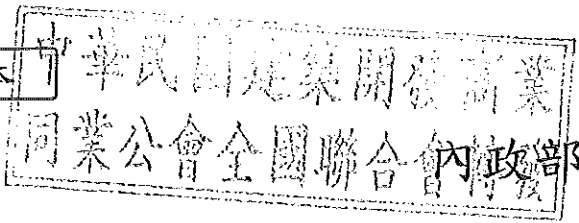 中華民國建築開發商業
同業公會全國聯合會轉發
內政部